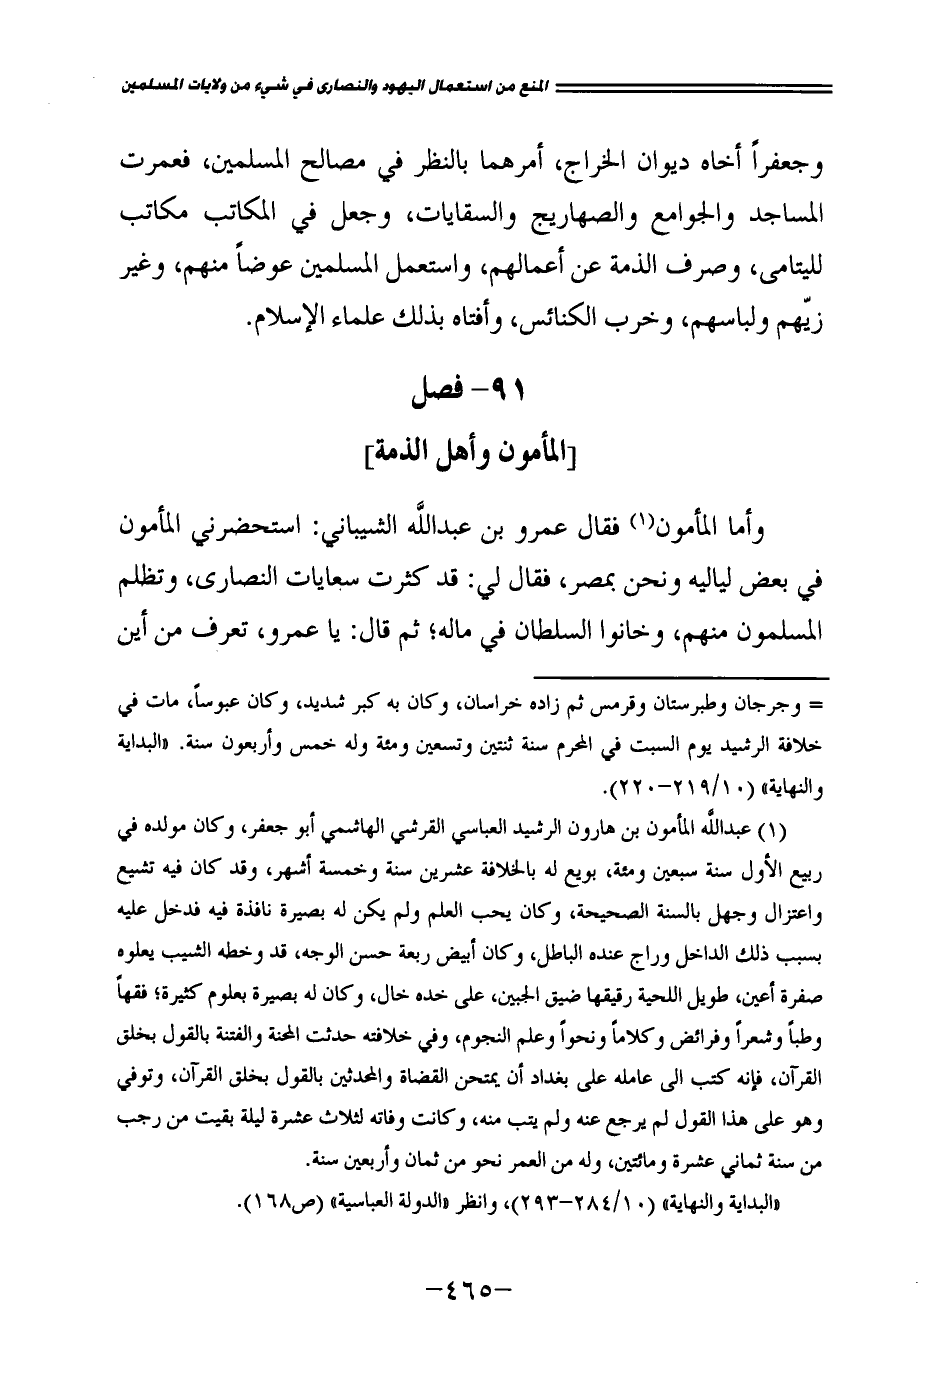 المنع من استعمال اليهود والنصارى في شيء من ولايات المسلمين
وجعفراً أخاه ديوان الخراج، أمرهما بالنظر في مصالح المسلمين، فعمرت
المساجد والجوامع والصهاريج والسقايات، وجعل في المكاتب مكاتب
لليتامى، وصرف الذمة عن أعمالهم، واستعمل المسلمين عوضاً منهم، وغير
زيّهم ولباسهم، وخرب الكنائس، وأفتاه بذلك علماء الإسلام.
٩١- فصل
[المأمون وأهل الذمة]
وأما المأمون(١) فقال عمرو بن عبدالله الشيباني: استحضرني المأمون
في بعض لياليه ونحن بمصر، فقال لي: قد كثرت سعايات النصارى، وتظلم
المسلمون منهم، وخانوا السلطان في ماله؛ ثم قال: يا عمرو، تعرف من أين
= وجرجان وطبرستان وقرمس ثم زاده خراسان، وكان به كبر شديد، وكان عبوساً، مات في
خلافة الرشيد يوم السبت في المحرم سنة ثنتين وتسعين ومئة وله خمس وأربعون سنة. «البداية
والنهاية» (١٠/٢١٩-٢٢٠).
(١) عبدالله المأمون بن هارون الرشيد العباسي القرشي الهاشمي أبو جعفر، وكان مولده في
ربيع الأول سنة سبعين ومئة، بويع له بالخلافة عشرين سنة وخمسة أشهر، وقد كان فيه تشيع
واعتزال وجهل بالسنة الصحيحة، وكان يحب العلم ولم يكن له بصيرة نافذة فيه فدخل عليه
بسبب ذلك الداخل وراج عنده الباطل، وكان أبيض ربعة حسن الوجه، قد وخطه الشيب يعلوه
صفرة أعين، طويل اللحية رقيقها ضيق الجبين، على خده خال، وكان له بصيرة بعلوم كثيرة؛ فقهاً
وطباً وشعراً وفرائض وكلاماً ونحواً وعلم النجوم، وفي خلافته حدثت المحنة والفتنة بالقول بخلق
القرآن، فإنه كتب الى عامله على بغداد أن يمتحن القضاة والمحدثين بالقول بخلق القرآن، وتوفي
وهو على هذا القول لم يرجع عنه ولم يتب منه، وكانت وفاته لثلاث عشرة ليلة بقيت من رجب
من سنة ثماني عشرة ومائتين، وله من العمر نحو من ثمان وأربعين سنة.
«البداية والنهاية» (١٠/٢٨٤-٢٩٣)، وانظر «الدولة العباسية» (ص١٦٨).
-٤٦٥-